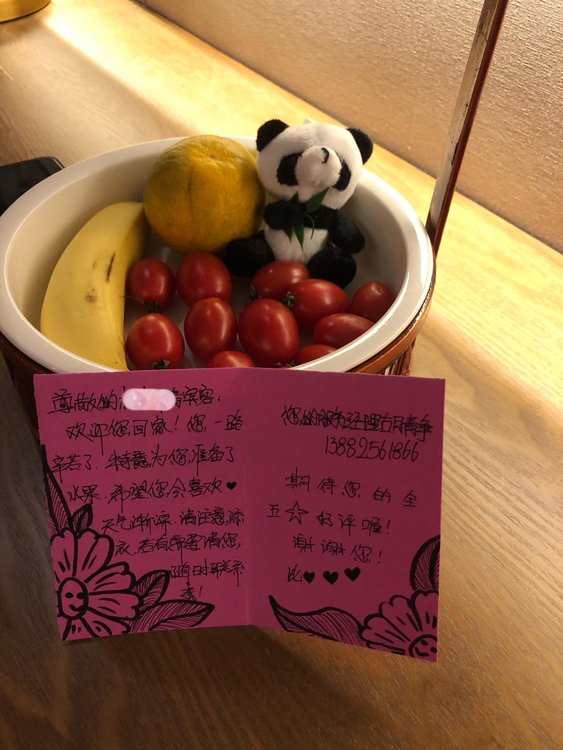 尊敬的 宾客:
欢迎您回家！您一路
辛苦了.特意为您准备了
水果.希望您会喜欢♥
天气渐凉.请注意添
衣.若有需要请您
随时联系
我!
您的服务经理
13882561866
期待您的全
五☆好评喔!
谢谢您!
比♥♥♥